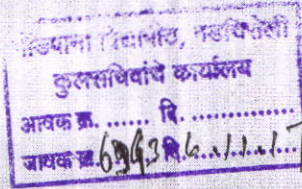 गोंडवाना विद्यापीठ, गडचिरोली
कुलसचिवांचे कार्यालय
आवक क्र. ...... दि. ................
जावक क्र. 6963 दि.